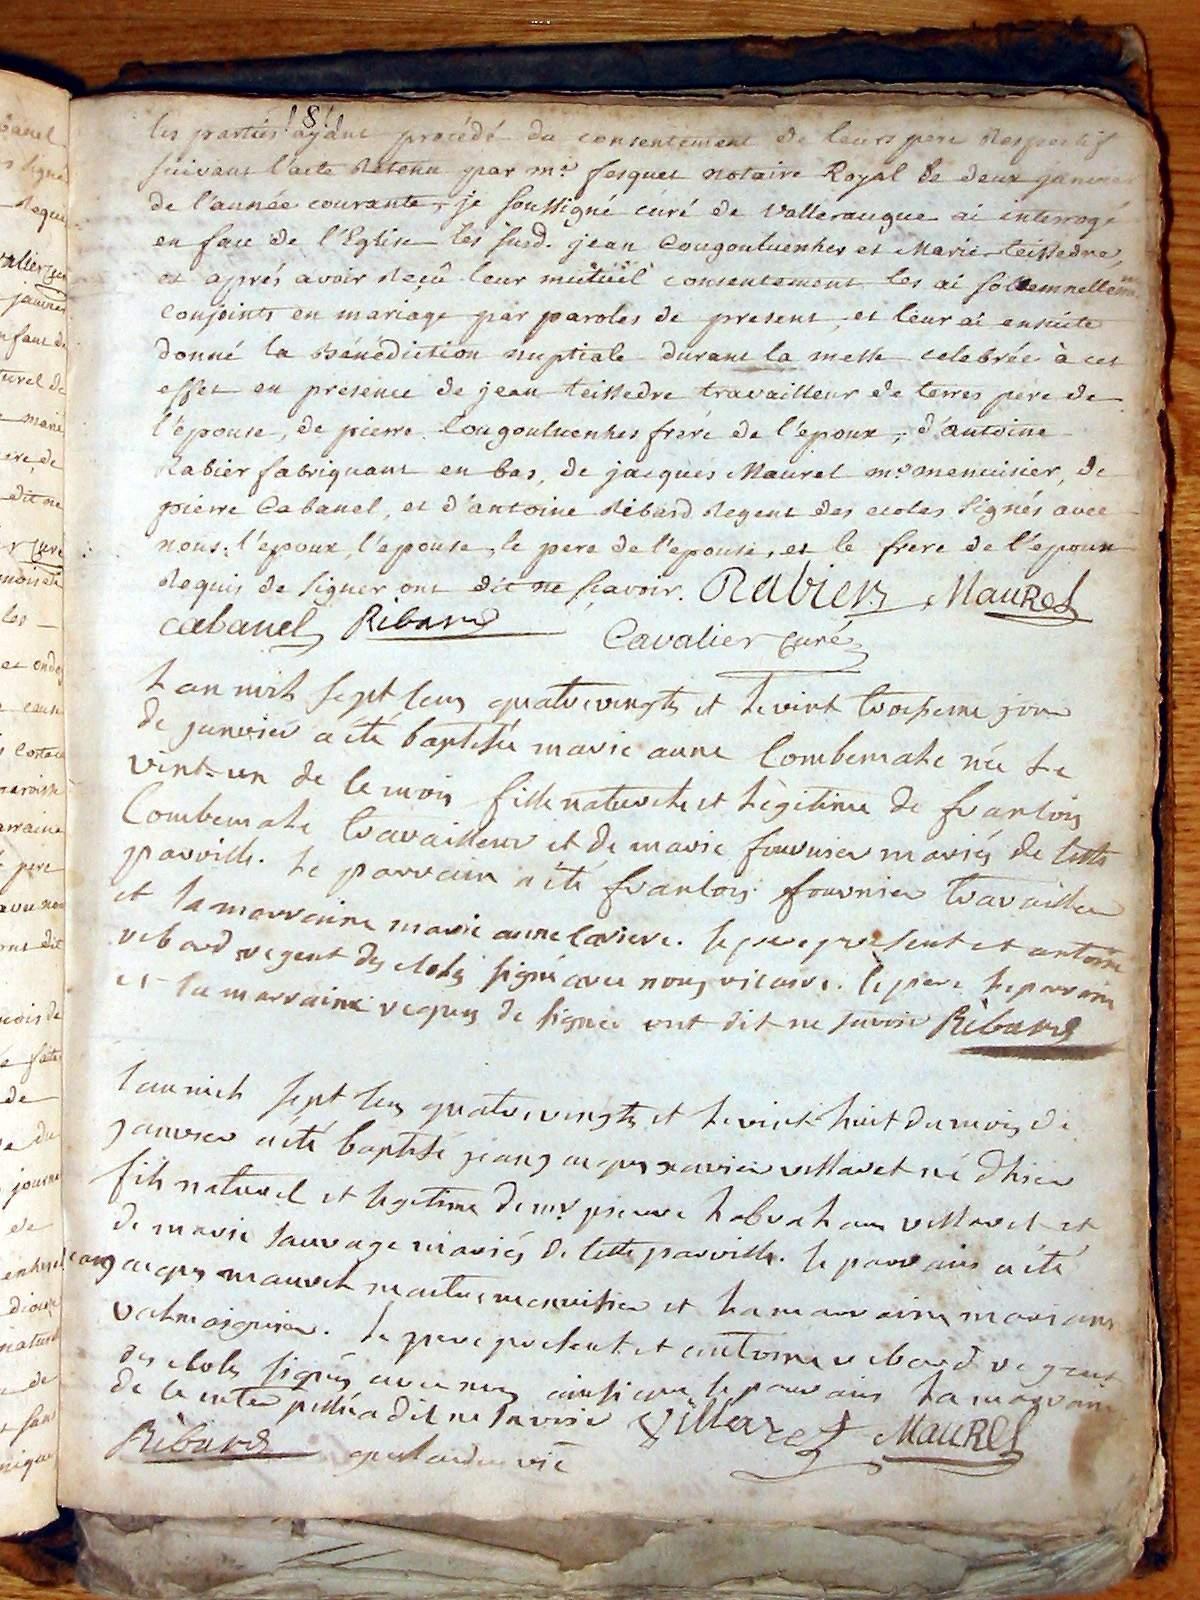 181
les parties ayant procédé du consentement de leurs pere respectif
suivant l'acte retenu par me. fesquet notaire Royal le deux janvier
de l'année courante, je soussigné curé de Valleraugue ai interrogé
en face de l'Eglise les susd. jean Cougouluenhes et Marie teissedre,
et aprés avoir reçû leur mutüel consentement les ai solemnellement
conjoints en mariage par paroles de present, et leur ai ensuite
donné la bénédiction nuptiale durant la messe celebrée à cet
effet en presence de jean teissedre travailleur de terres pere de
l'epouse, de pierre Cougouluenhes frere de l'epoux, d'antoine
Rabier fabriquant en bas, de jacques Maurel me. menuisier, de
pierre Cabanel, et d'antoine Ribard Regent des ecoles signés avec
nous; l'epoux, l'epouse, le pere de l'epouse, et le frere de l'epoux
Requis de signer ont dit ne sçavoir. Rabier Maurel
cabanel Ribard Cavalier curé
Lan mil sept cens quatrevingts et le vint troisieme jour
de janvier a été baptisée marie anne Combemale née le
vint-un de ce mois fille naturele et legitime de francois
Combemale travailleur et de marie fournier mariés de cette
parroisse. le parrain a été francois fournier travailleur
et la marraine marie anne lariere. le pere present et antoine
rebard regent des ecoles signé avec nous vicaire. le pere le parrain
et la marraine requis de signer ont dit ne savoir Ribard
lan mil sept cens quatrevingts et le vint-huit du mois de
janvier a été baptisé jean jacques xavier villaret né d'hier
fils naturel et legitime de mr. pierre habraham villaret et
de marie sauvage mariés de cette parroisse. le parrain a été
jean jacques maurel maitre menuisier et la marraine marianne
valmaiguier. le pere present et antoine rebard regent
des ecoles signés avec nous ainsi que le parrain la marraine
de ce interpellée a dit ne savoir Villaret Maurel
Ribard vic